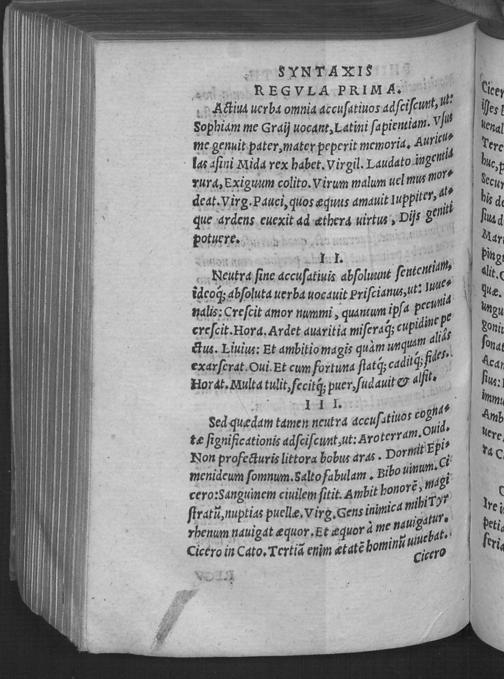 SYNTAXIS
REGVLA PRIMA.
Actiua uerba omnia accusatiuos adsciscunt, ut:
Sophiam me Graij uocant, Latini sapientiam. Vsus
me genuit pater, mater peperit memoria. Auricu-
las asini Mida rex habet. Virgil. Laudato ingentia
rura, Exiguum colito. Virum malum uel mus mor-
deat. Virg. Pauci, quos æquus amauit Iuppiter, at-
que ardens euexit ad æthera uirtus, Dijs geniti
potuere.
II.
Neutra sine accusatiuis absoluunt sententiam,
ideoq; absoluta uerba uocauit Priscianus, ut: Iuue-
nalis: Crescit amor nummi, quantum ipsa pecunia
crescit. Hora. Ardet auaritia miseraq; cupidine pe
ctus. Liuius: Et ambitio magis quàm unquam aliàs
exarserat. Oui. Et cum fortuna statq; caditq; fides.
Horat. Multa tulit, fecitq; puer, sudauit & alsit.
III.
Sed quædam tamen neutra accusatiuos cogna-
tæ significationis adsciscunt, ut: Aro terram. Ouid.
Non profecturis littora bobus aras. Dormit Epi
menideum somnum. Salto fabulam. Bibo uinum. Ci
cero: Sanguinem ciuilem sitit. Ambit honorē, magi
stratū, nuptias puellæ. Virg. Gens inimica mihi Tyr
rhenum nauigat æquor. Et æquor à me nauigatur.
Cicero in Cato. Tertiā enim ætatē hominū uiuebat.
Cicero